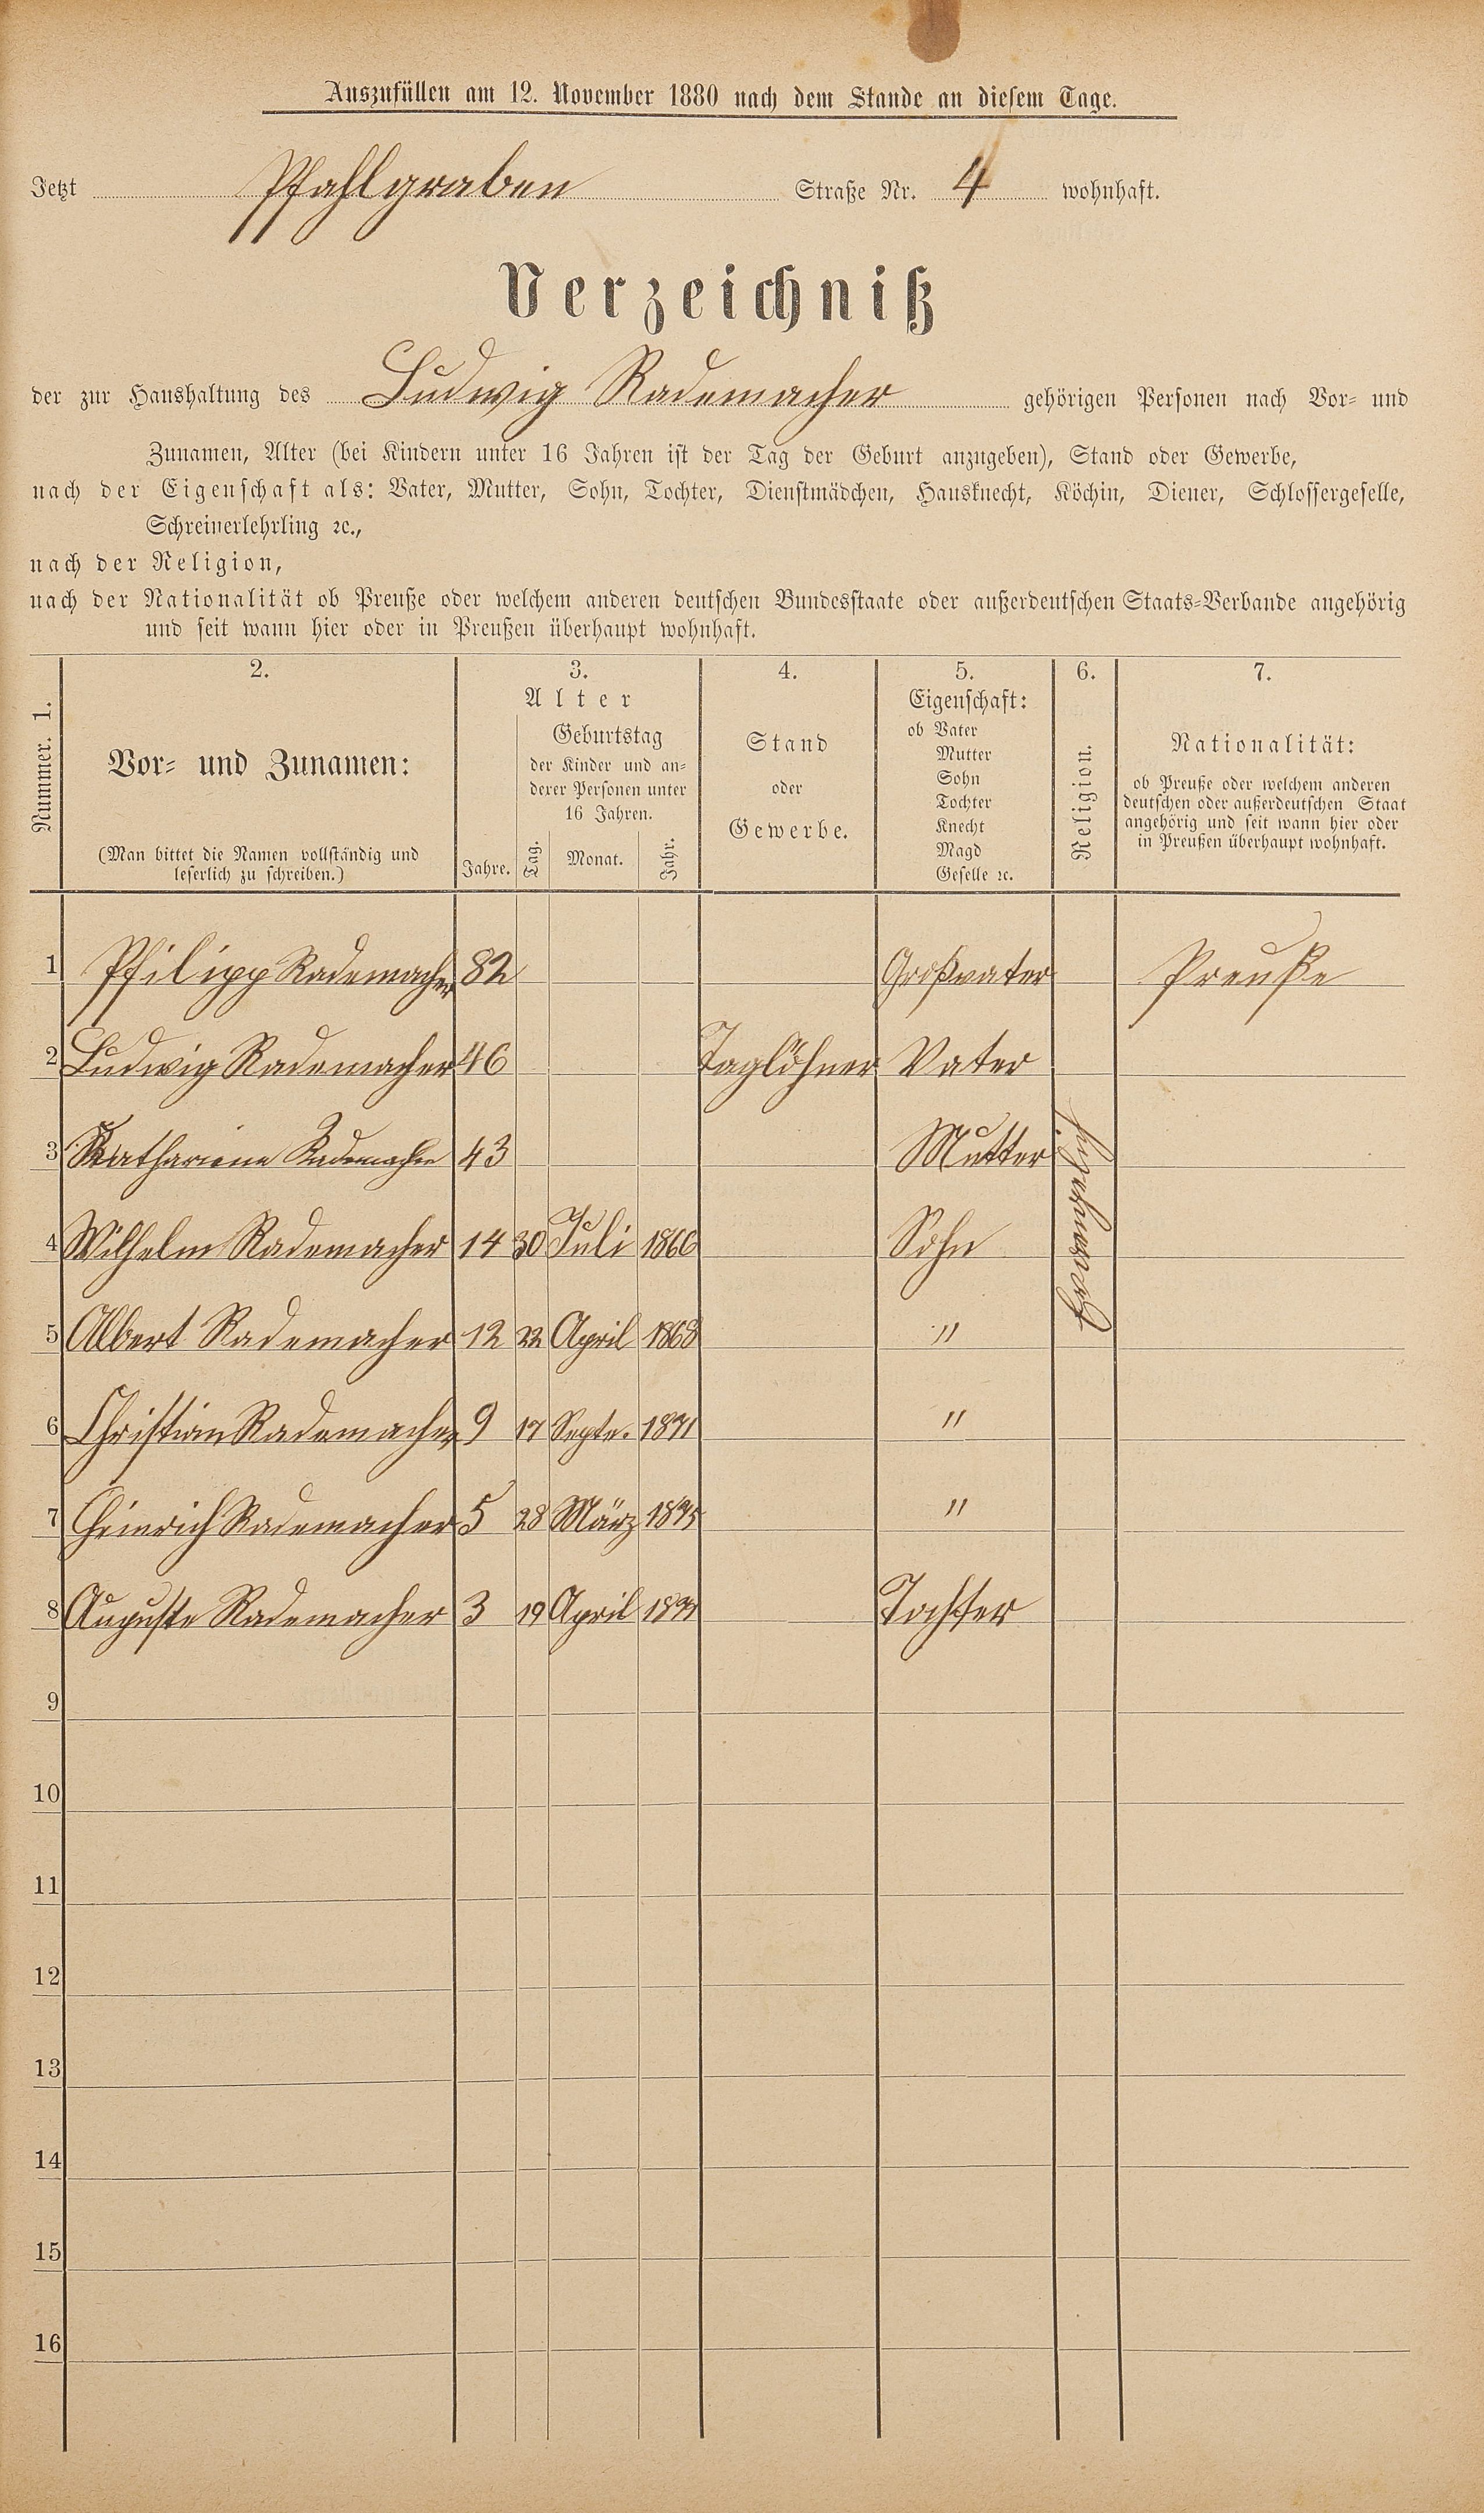 Auszufüllen am 12. November 1880 nach dem Stande an diesem Tage.
Jetzt Pfahlgraben Straße Nr. 4 wohnhaft.
Verzeichniß
der zur Haushaltung des Ludwig Rademacher gehörigen Personen nach Vor- und
Zunamen, Alter (bei Kindern unter 16 Jahren ist der Tag der Geburt anzugeben), Stand oder Gewerbe,
nach der Eigenschaft als: Vater, Mutter, Sohn, Tochter, Dienstmädchen, Hausknecht, Köchin, Diener, Schlossergeselle,
Schreinerlehrling ꝛc.,
nach der Religion,
nach der Nationalität ob Preuße oder welchem anderen deutschen Bundesstaate oder außerdeutschen Staats-Verbande angehörig
und seit wann hier oder in Preußen überhaupt wohnhaft.
Nummer. 1.
2.
Vor- und Zunamen:
(Man bittet die Namen vollständig und
leserlich zu schreiben.)
3.
Alter
Jahre.
Geburtstag
der Kinder und an-
derer Personen unter
16 Jahren.
Tag. Monat. Jahr.
4.
Stand
oder
Gewerbe.
5.
Eigenschaft:
ob Vater
Mutter
Sohn
Tochter
Knecht
Magd
Geselle ꝛc.
6.
Religion.
7.
Nationalität:
ob Preuße oder welchem anderen
deutschen oder außerdeutschen Staat
angehörig und seit wann hier oder
in Preußen überhaupt wohnhaft.
1 Philipp Rademacher 82 Großvater Preuße
2 Ludwig Rademacher 46 Taglöhner Vater
3 Katharina Rademacher 43 Mutter
4 Wilhelm Rademacher 14 30 Juli 1866 Sohn
5 Albert Rademacher 12 22 April 1868 "
6 Christian Rademacher 9 17 Septe. 1871 "
7 Heinrich Rademacher 5 28 März 1875 "
8 Auguste Rademacher 3 19 April 1877 Tochter
9
10
11
12
13
14
15
16